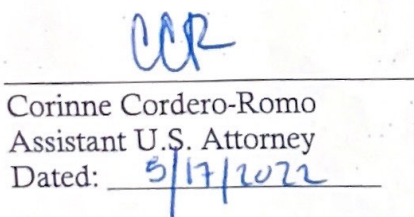 CCR
Corinne Cordero-Romo
Assistant U.S. Attorney
Dated: 5/17/2022